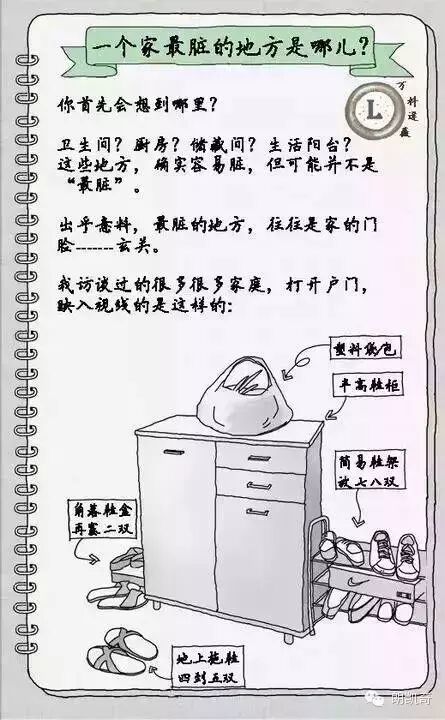 一个家最脏的地方是哪儿?
万科逆袭
L
你首先会想到哪里?
卫生间? 厨房? 储藏间? 生活阳台?
这些地方, 确实容易脏, 但可能并不是
“最脏”。
出乎意料, 最脏的地方, 往往是家的门
脸-------玄关。
我访谈过的很多很多家庭, 打开户门,
映入视线的是这样的:
塑料袋包
半高鞋柜
简易鞋架
放七八双
角落鞋盒
再塞二双
地上拖鞋
四到五双
明凯奇